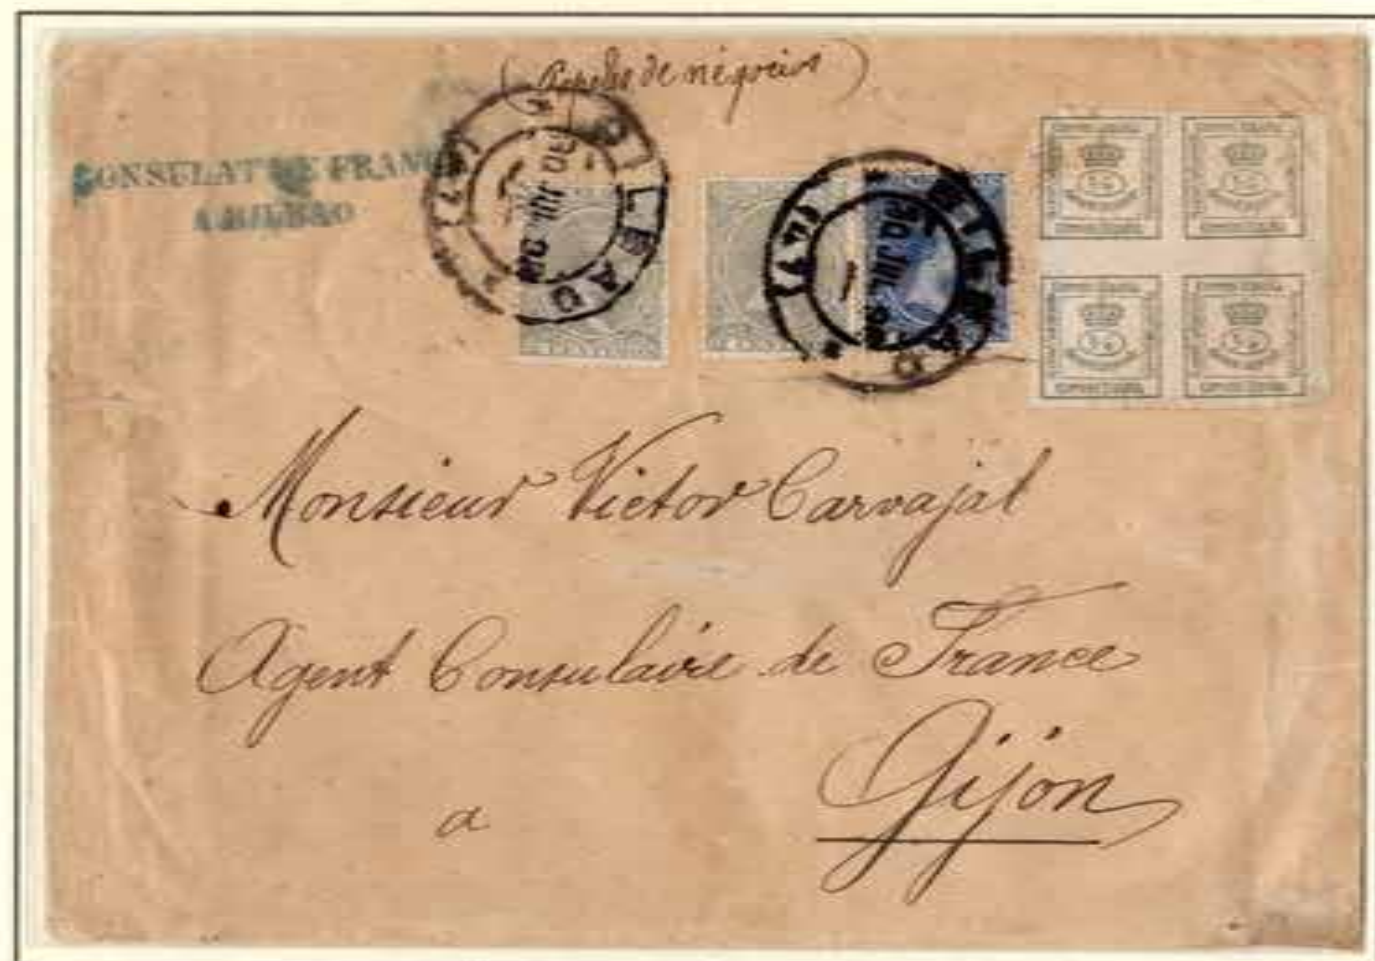 (Papeles de négocios)
CONSULAT DE FRANCE
A BILBAO
BILBAO
30 JUL 90
(47)
BILBAO
30 JUL
(47)
CENTIMOS
Monsieur Victor Carvajal
Agent Consulaire de France
a
Gijon